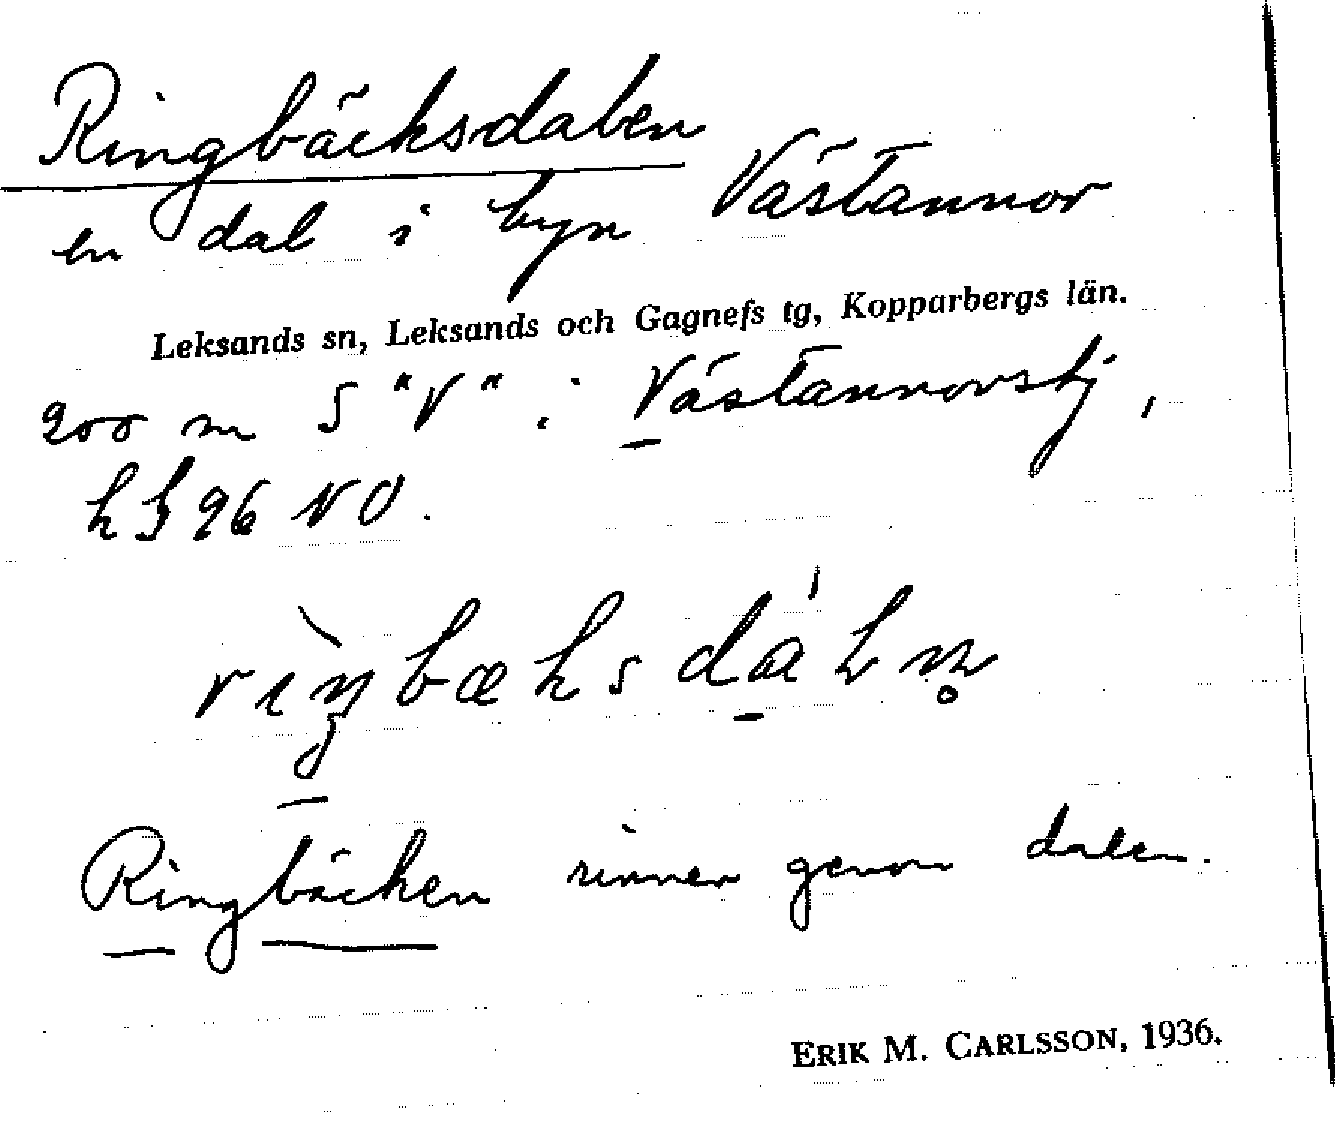 Ringbäcksdalen
en dal i byn Västannor
Leksands sn, Leksands och Gagnefs tg, Kopparbergs län.
200 m S "V" i Västannorsbj,
96 NO.
Ringbäcken rinner genom dalen.
ERIK M. CARLSSON, 1936.